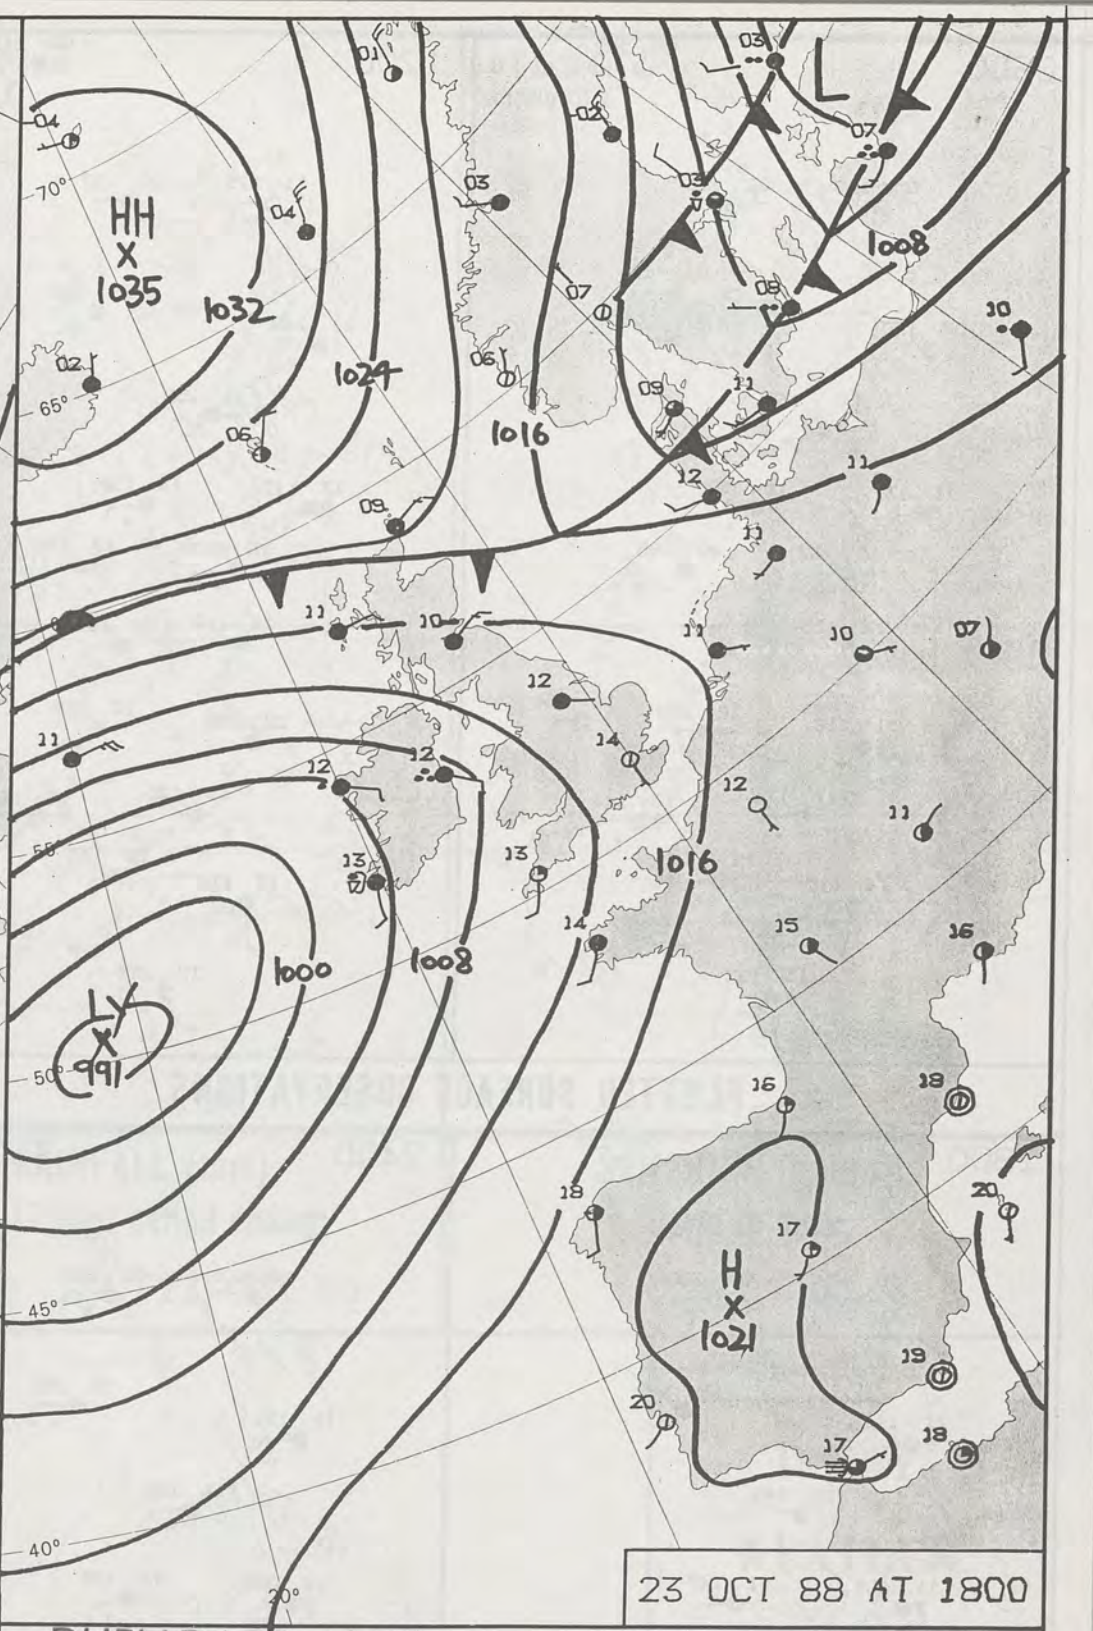 01
03
L
04
02
07
70°
03
03
HH
X
1035
04
1008
1032
07
08
10
02
1024
06
65°
09
11
06
1016
12
11
09
11
11
10
11
10
07
12
11
14
12
12
12
11
55°
13
13
1016
14
15
16
1000
1008
LY
X
991
50°
16
18
18
20
17
H
X
1021
45°
19
20
17
18
40°
20°
23 OCT 88 AT 1800
PLOTTED SURFACE OBSERVATIONS